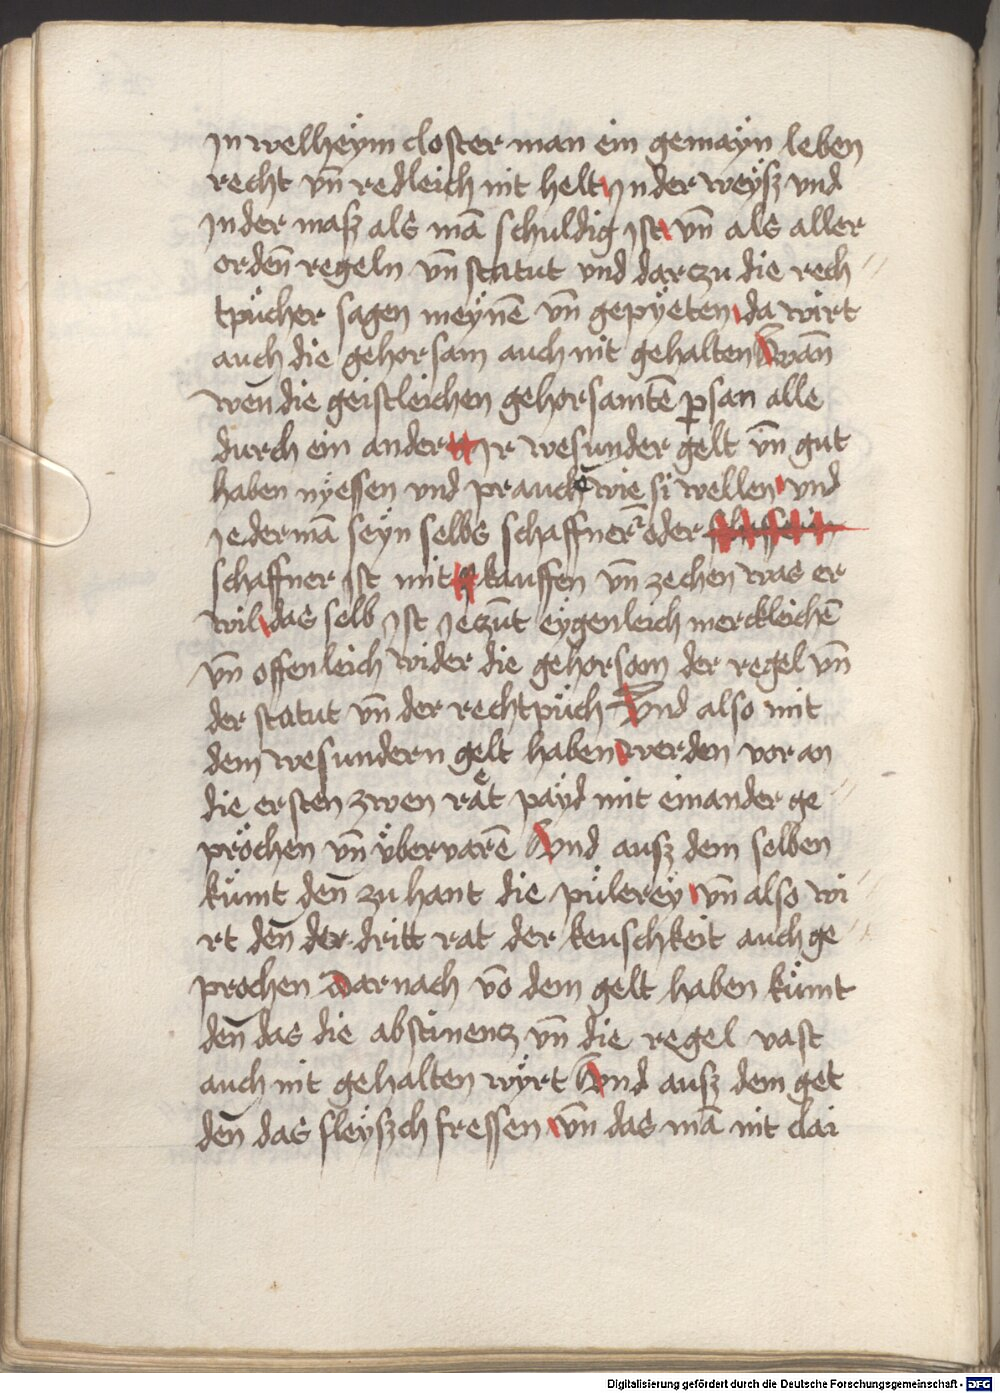 Jn welheÿm closter man ein gemaÿn leben
recht vn̄ redleich nit helt Jn der weÿsz vnd
Jn der masz als mā schuldig Jst vn̄ als aller
orden̄ regeln vn̄ statut vnd darzu die rech
tpücher sagen meÿnē vn̄ gepÿeten da wirt
auch die gehorsam auch nit gehalten Wan̄
wen̄ die geistleichen gehorsamtē ꝑsan alle
durch ein ander Jr wesunder gelt vn̄ gut
haben nÿessen vnd prauchē wie si wellen vnd
Jederman̄ seÿn selbs schaffner oder
schaffner Jst mit kauffen vn̄ zechen was er
wil das selb Jst Jeczūt eÿgenleich merckleichē
vn̄ offenleich wider die gehorsam der regel vn̄
der statut vn̄ der rechtpüch Vnd also mit
dem wesundern gelt haben werden voran
die ersten zwen rät paÿd mit einander ge
pröchen vn̄ übervarē Vnd ausz dem selben
kümt den̄ zu hant die pülereÿ vn̄ also wi
rt den̄ der dritt rat der keuschkeit auch ge
prochen Darnach vō dem gelt haben kümt
den̄ das die abstinencz vn̄ die regel vast
auch nit gehalten wÿrt Vnd ausz dem get
den̄ das fleÿsch fressen vn̄ das mā nit clai
Digitalisierung gefördert durch die Deutsche Forschungsgemeinschaft - DFG